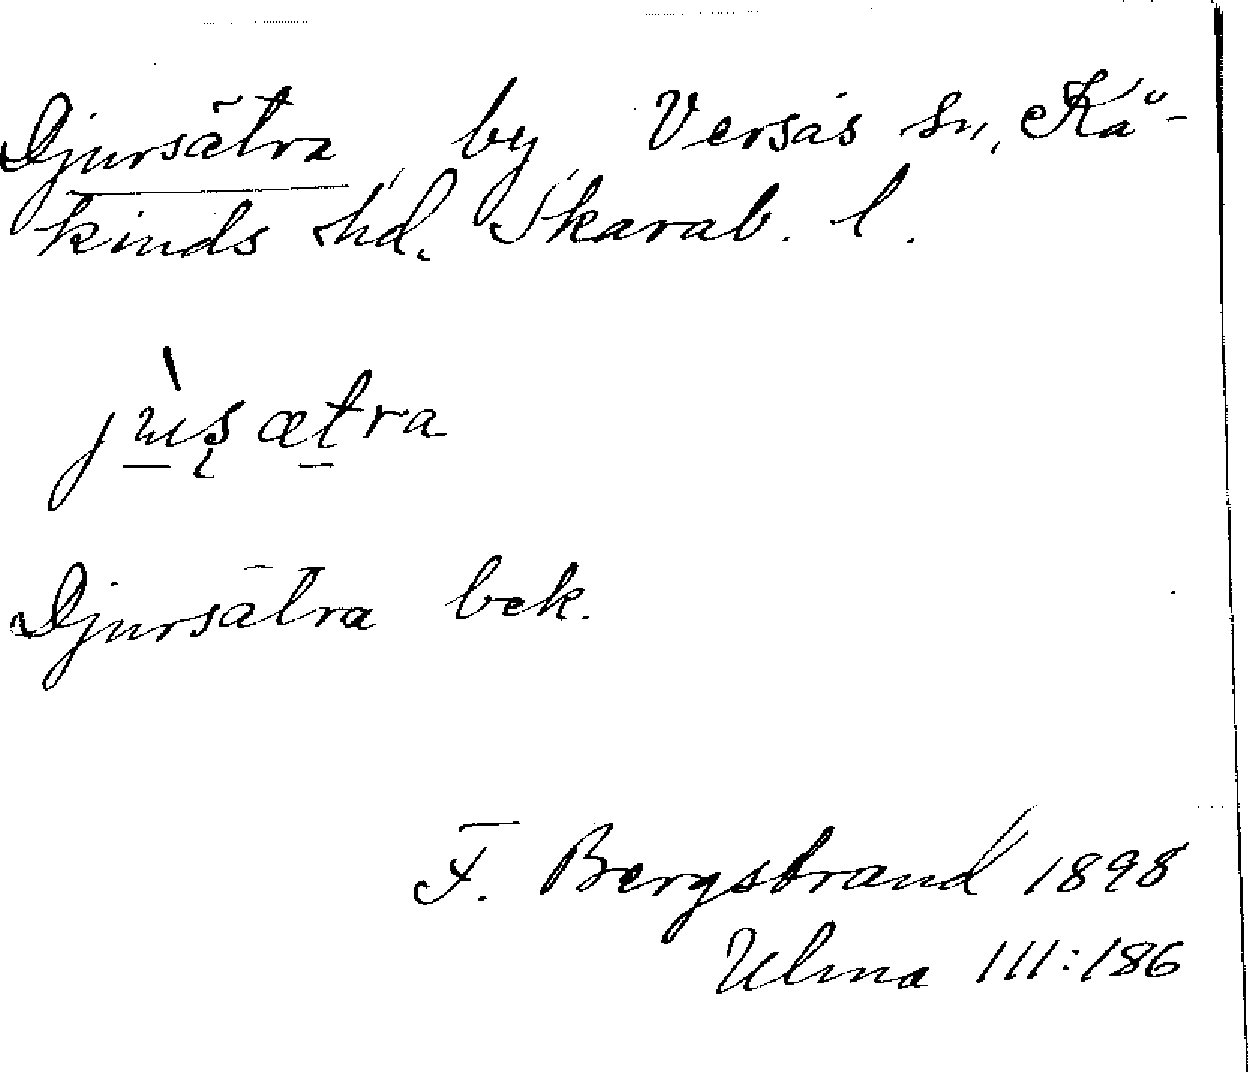 Djursätra, by, Versås sn, Kå-
kinds hd. Skarab. l.
jùʂætra
Djursätra bek.
F. Bergstrand 1898
Ulma 111:186